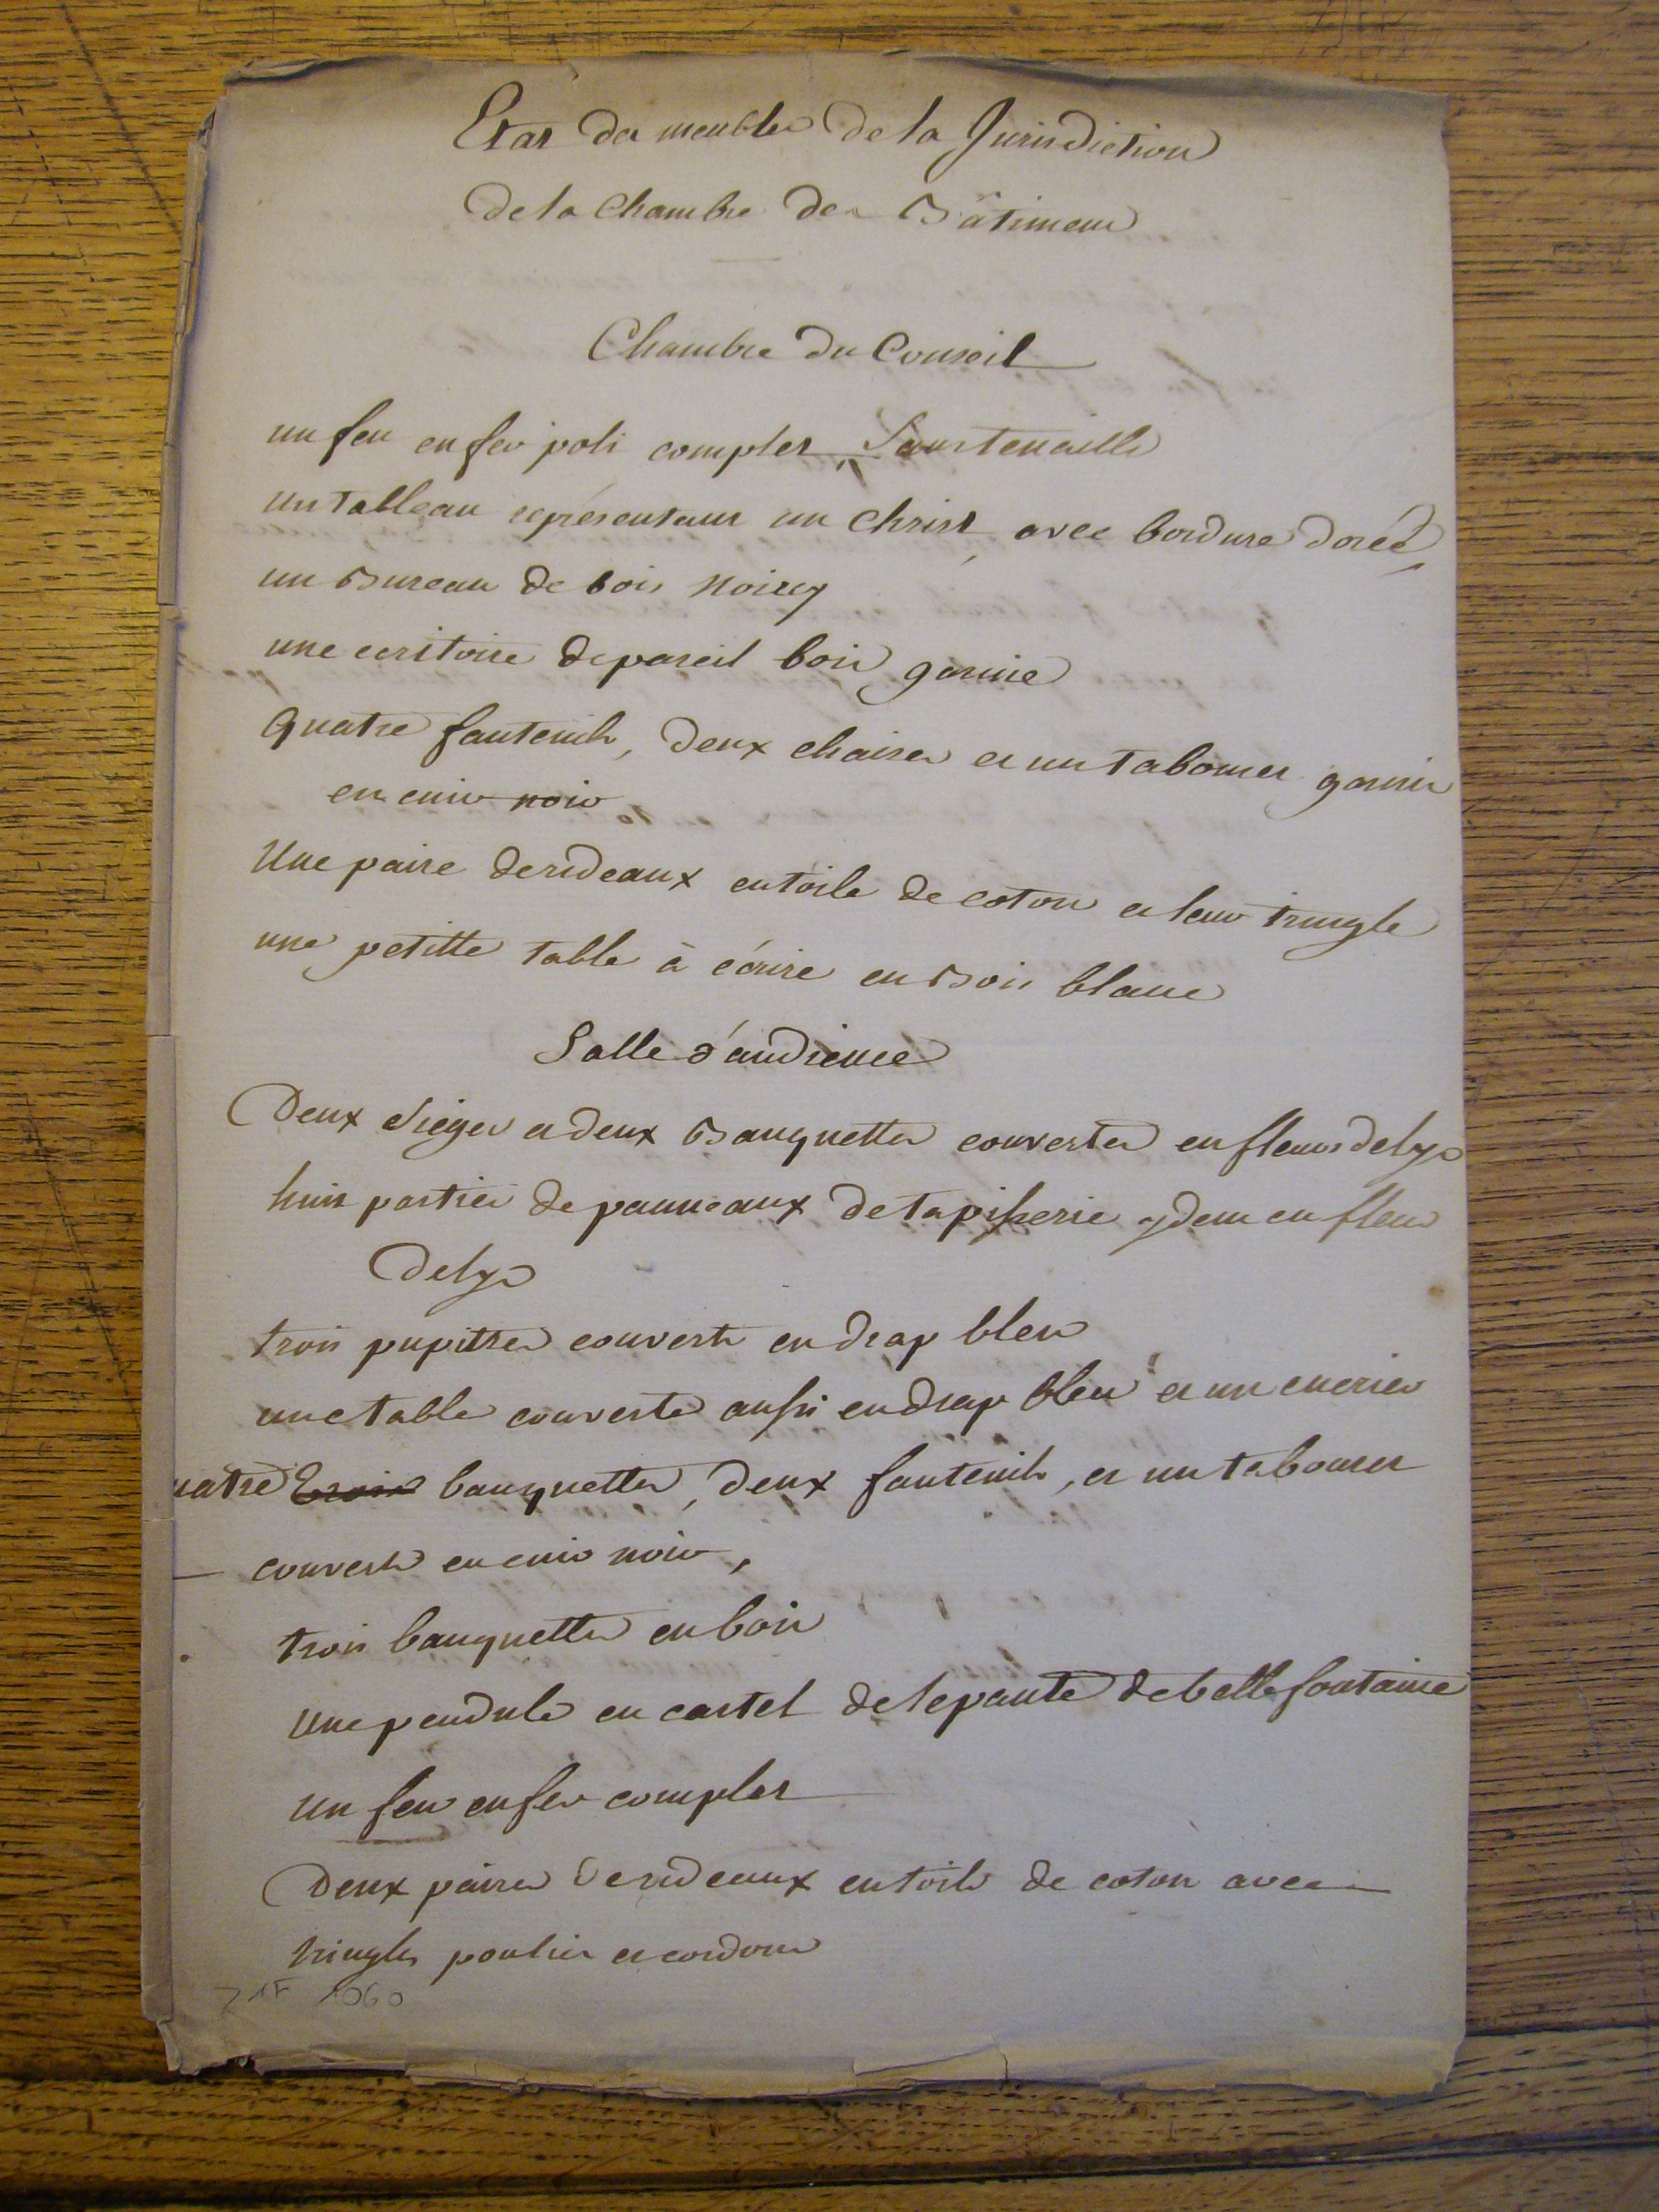 Etat des meubles de la Jurisdiction
de la Chambre des Bâtimens
Chambre du Conseil
un feu en fer poli complet, sans tenaille
un tableau représentant un Christ, avec bordure dorée,
un Bureau de bois Noircy
une ecritoire de pareil bois garnie
quatre fauteuils, deux chaises et un tabouret garnis
en cuir noir.
Une paire de rideaux en toile de coton et leur tringle
une petitte table à écrire en Bois blanc
Salle d'audience
Deux sieges et deux Banquettes couvertes en fleurs de lys
huit parties de panneaux de tapisserie ydem en fleurs
de lys
trois pupitres couverts en drap bleu
une table couverte aussi en drap bleu et un encrier
uatre trois banquettes, deux fauteuils, et un tabouret
couverts en cuir noir,
trois banquettes en bois
une pendule en cartel de lepaute de belle fontaine
un feu en fer complet
Deux paires de rideaux en toile de coton avec
tringles poulies et cordons
Z 1F 1060